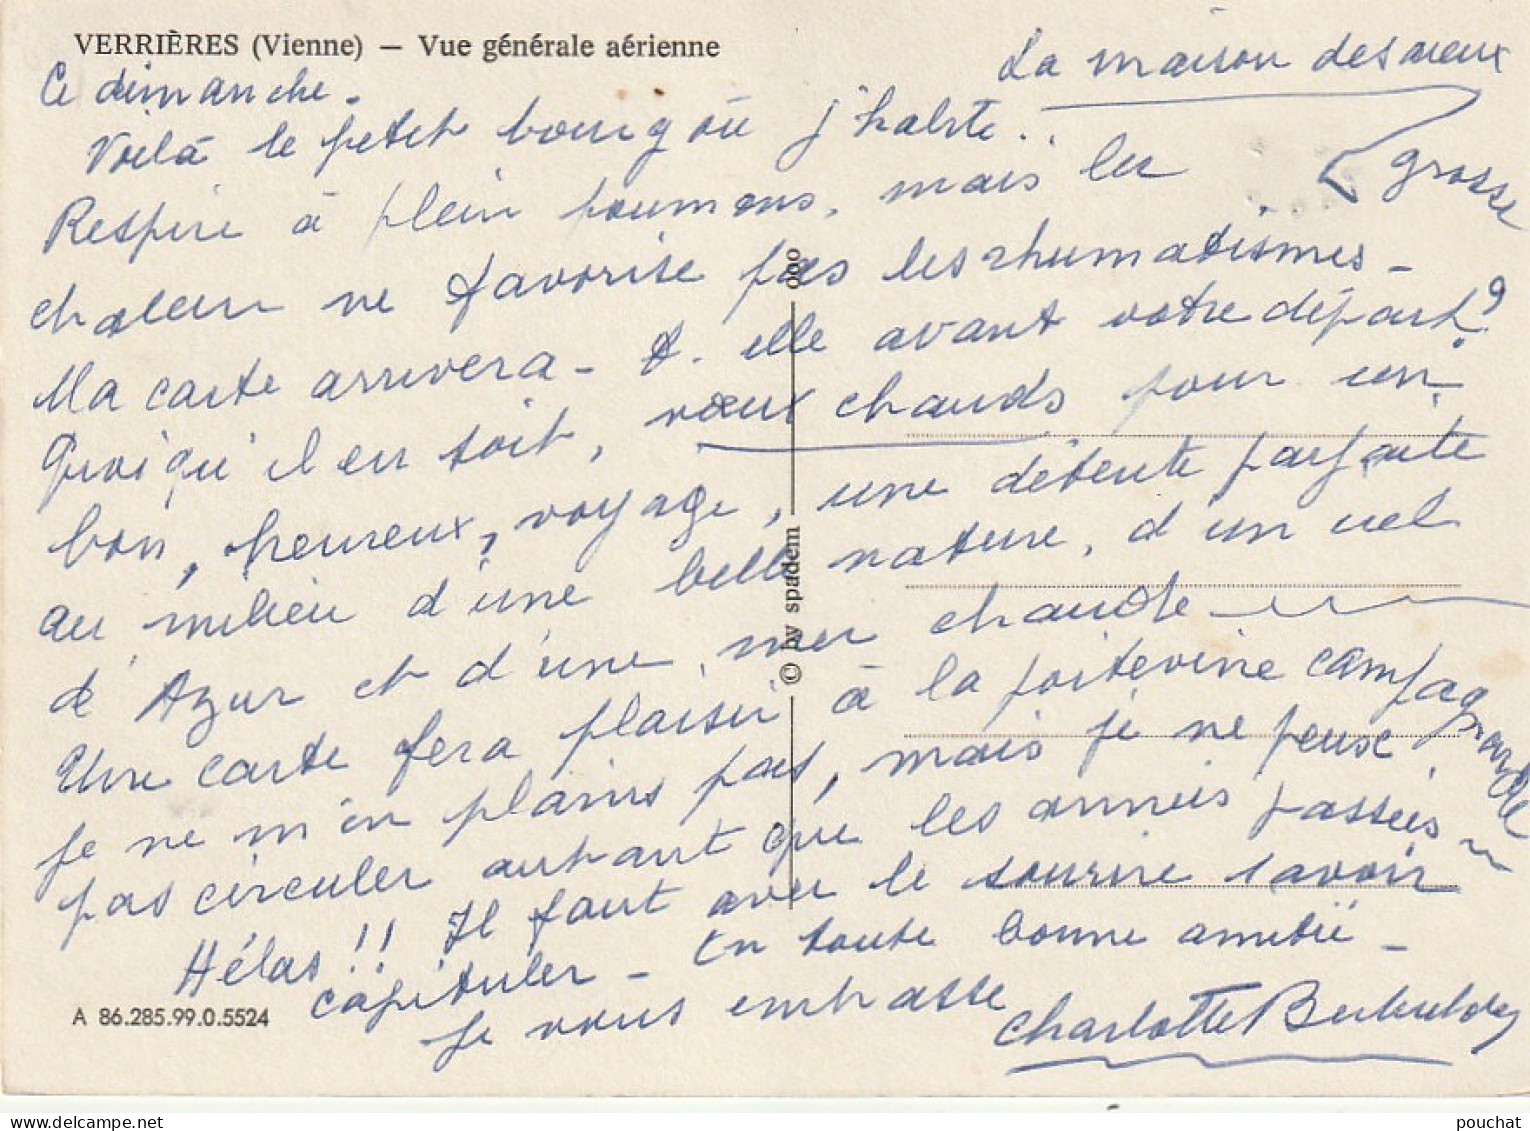 VERRIÈRES (Vienne) — Vue générale aérienne
La maison des aieux
Ce dimanche.
Voilà le petit bourg où j'habite..
Respire à plein poumons, mais la grosse
chaleur ne favorise pas les rhumatismes -
Ma carte arrivera - t. elle avant votre départ?
Quoiqu'il en soit, vœux chauds pour un
bon, heureux, voyage, une détente parfaite
au milieu d'une belle nature, d'un ciel
d'Azur et d'une mer chaude
Une carte fera plaisir à la poitevine campagnarde
je ne m'en plains pas, mais je ne peux
pas circuler autant que les années passées
Hélas!! Il faut avec le sourire savoir
capituler - En toute bonne amitié -
Je vous embrasse
Charlotte
© by spadem
000
A 86.285.99.0.5524
pouchat